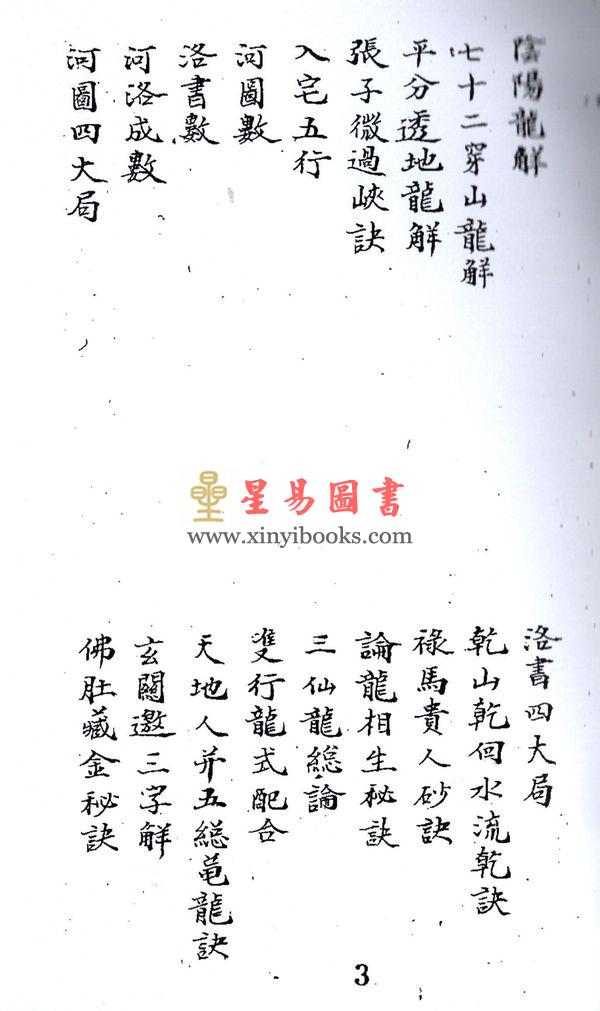 陰陽龍解
七十二穿山龍解
平分透地龍解
張子微過峽訣
入宅五行
河圖數
洛書數
河洛成數
河圖四大局
星易圖書
www.xinyibooks.com
洛書四大局
乾山乾向水流乾訣
祿馬貴人砂訣
論龍相生秘訣
三仙龍総論
雙行龍式配合
天地人并五総黾龍訣
玄關邀三字解
佛肚藏金秘訣
3